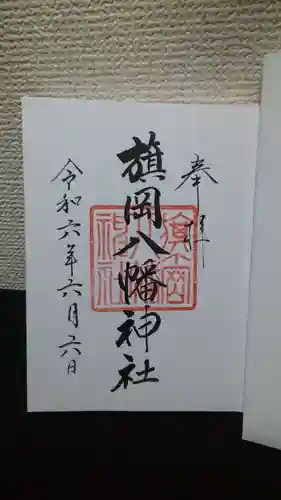 奉拝
旗岡八幡神社
令和六年六月六日